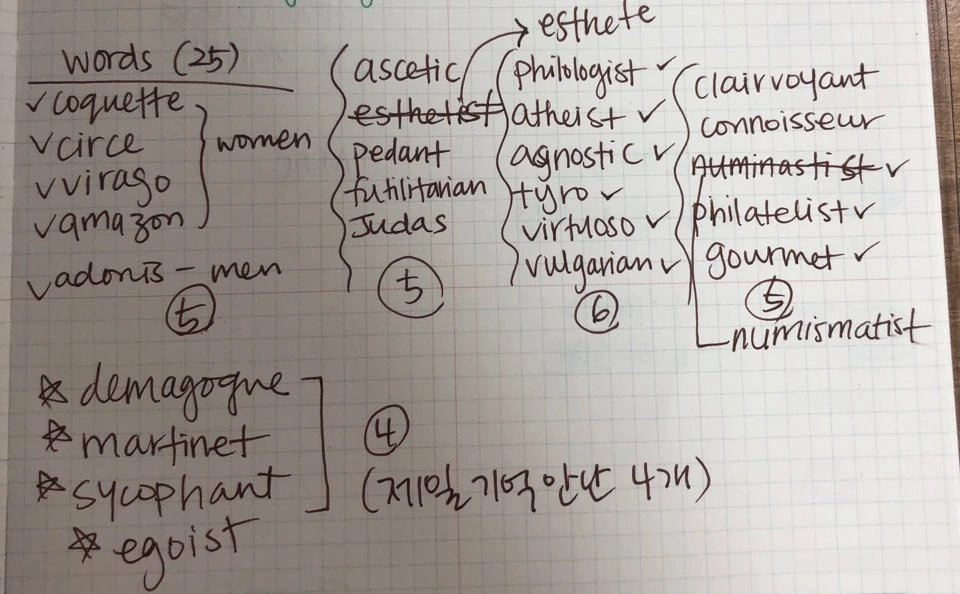 words (25)
✓coquette
✓circe
✓virago
✓amazon
women
✓adonis - men
5
ascetic
esthetist
pedant
futilitarian
Judas
5
esthete
philologist ✓
atheist ✓
agnostic ✓
tyro ✓
virtuoso ✓
vulgarian ✓
6
clairvoyant
connoisseur
numinastist ✓
philatelist ✓
gourmet ✓
5
numismatist
☆ demagogue
☆ martinet
☆ sycophant
☆ egoist
4
(제일 기억 안난 4개)